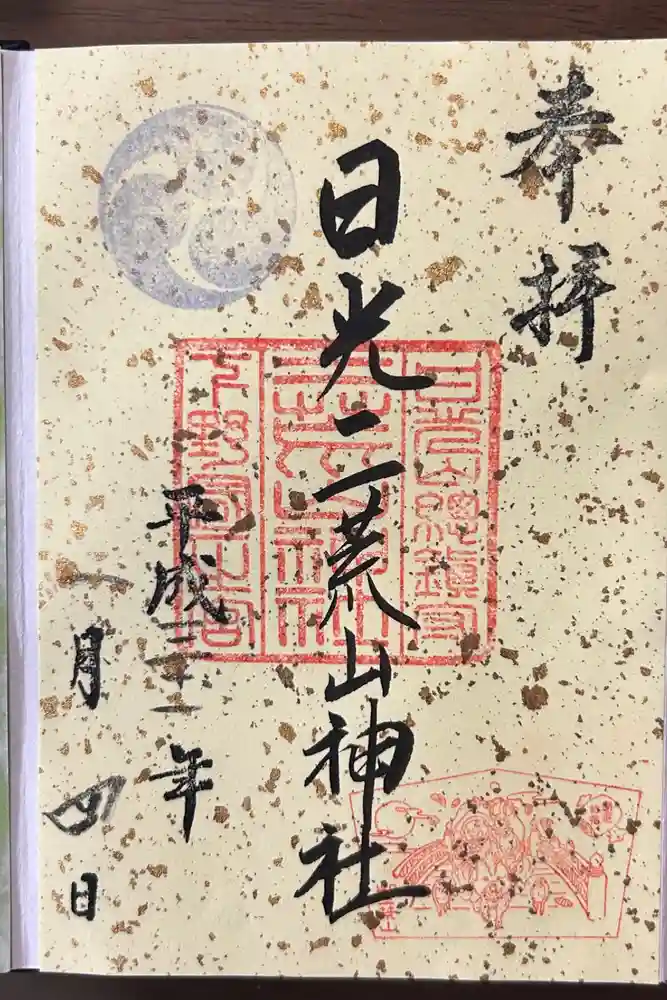 奉拝
日光二荒山神社
平成三十一年
一月四日
日光山總鎮守
二荒山神社
下野國一之宮